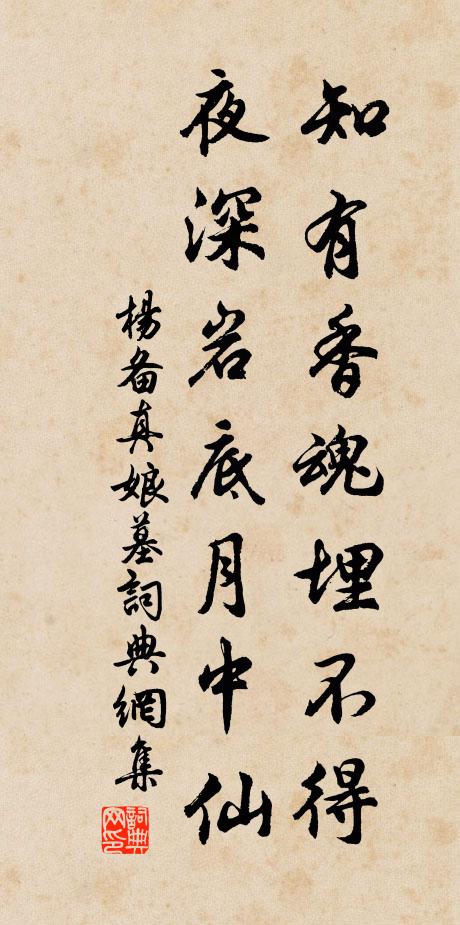 知有香魂埋不得
夜深岩底月中仙
楊备真娘墓詞典網集
詞典网印